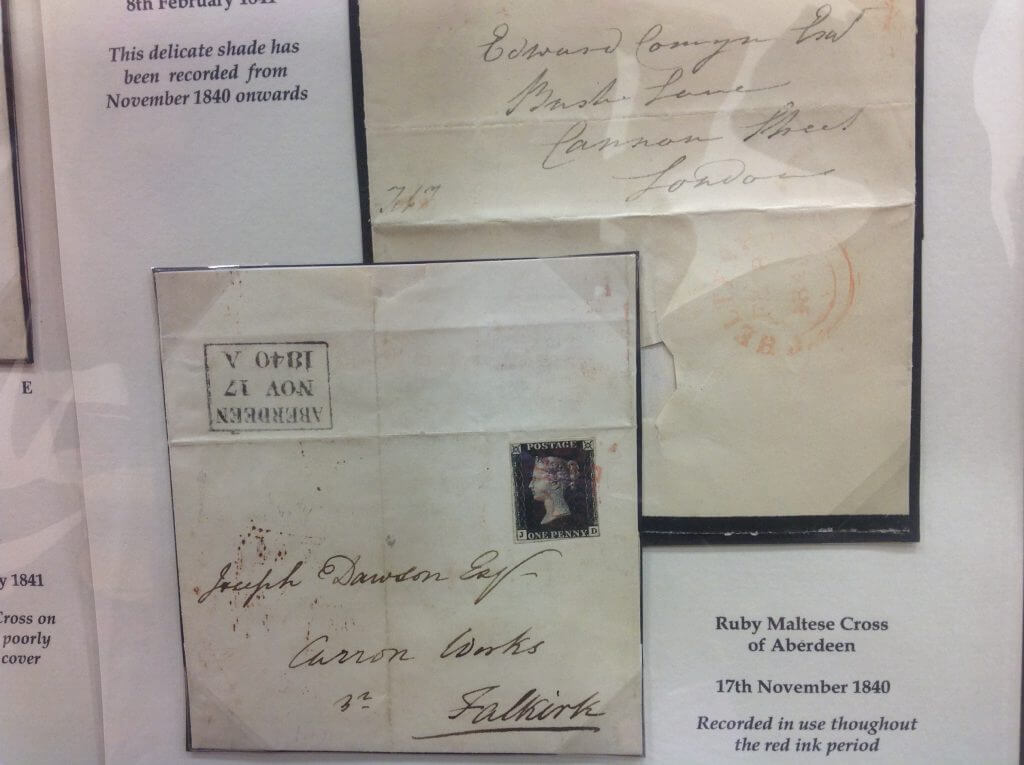 8th February 1841
This delicate shade has
been recorded from
November 1840 onwards
Edward Comyn Esqr
Bush Lane
Cannon Street
London
E
ABERDEEN
NOV 17
1840 A
POSTAGE
J ONE PENNY D
Joseph Dawson Esqr
Carron Works
Falkirk
y 1841
Cross on
poorly
cover
Ruby Maltese Cross
of Aberdeen
17th November 1840
Recorded in use thoughout
the red ink period